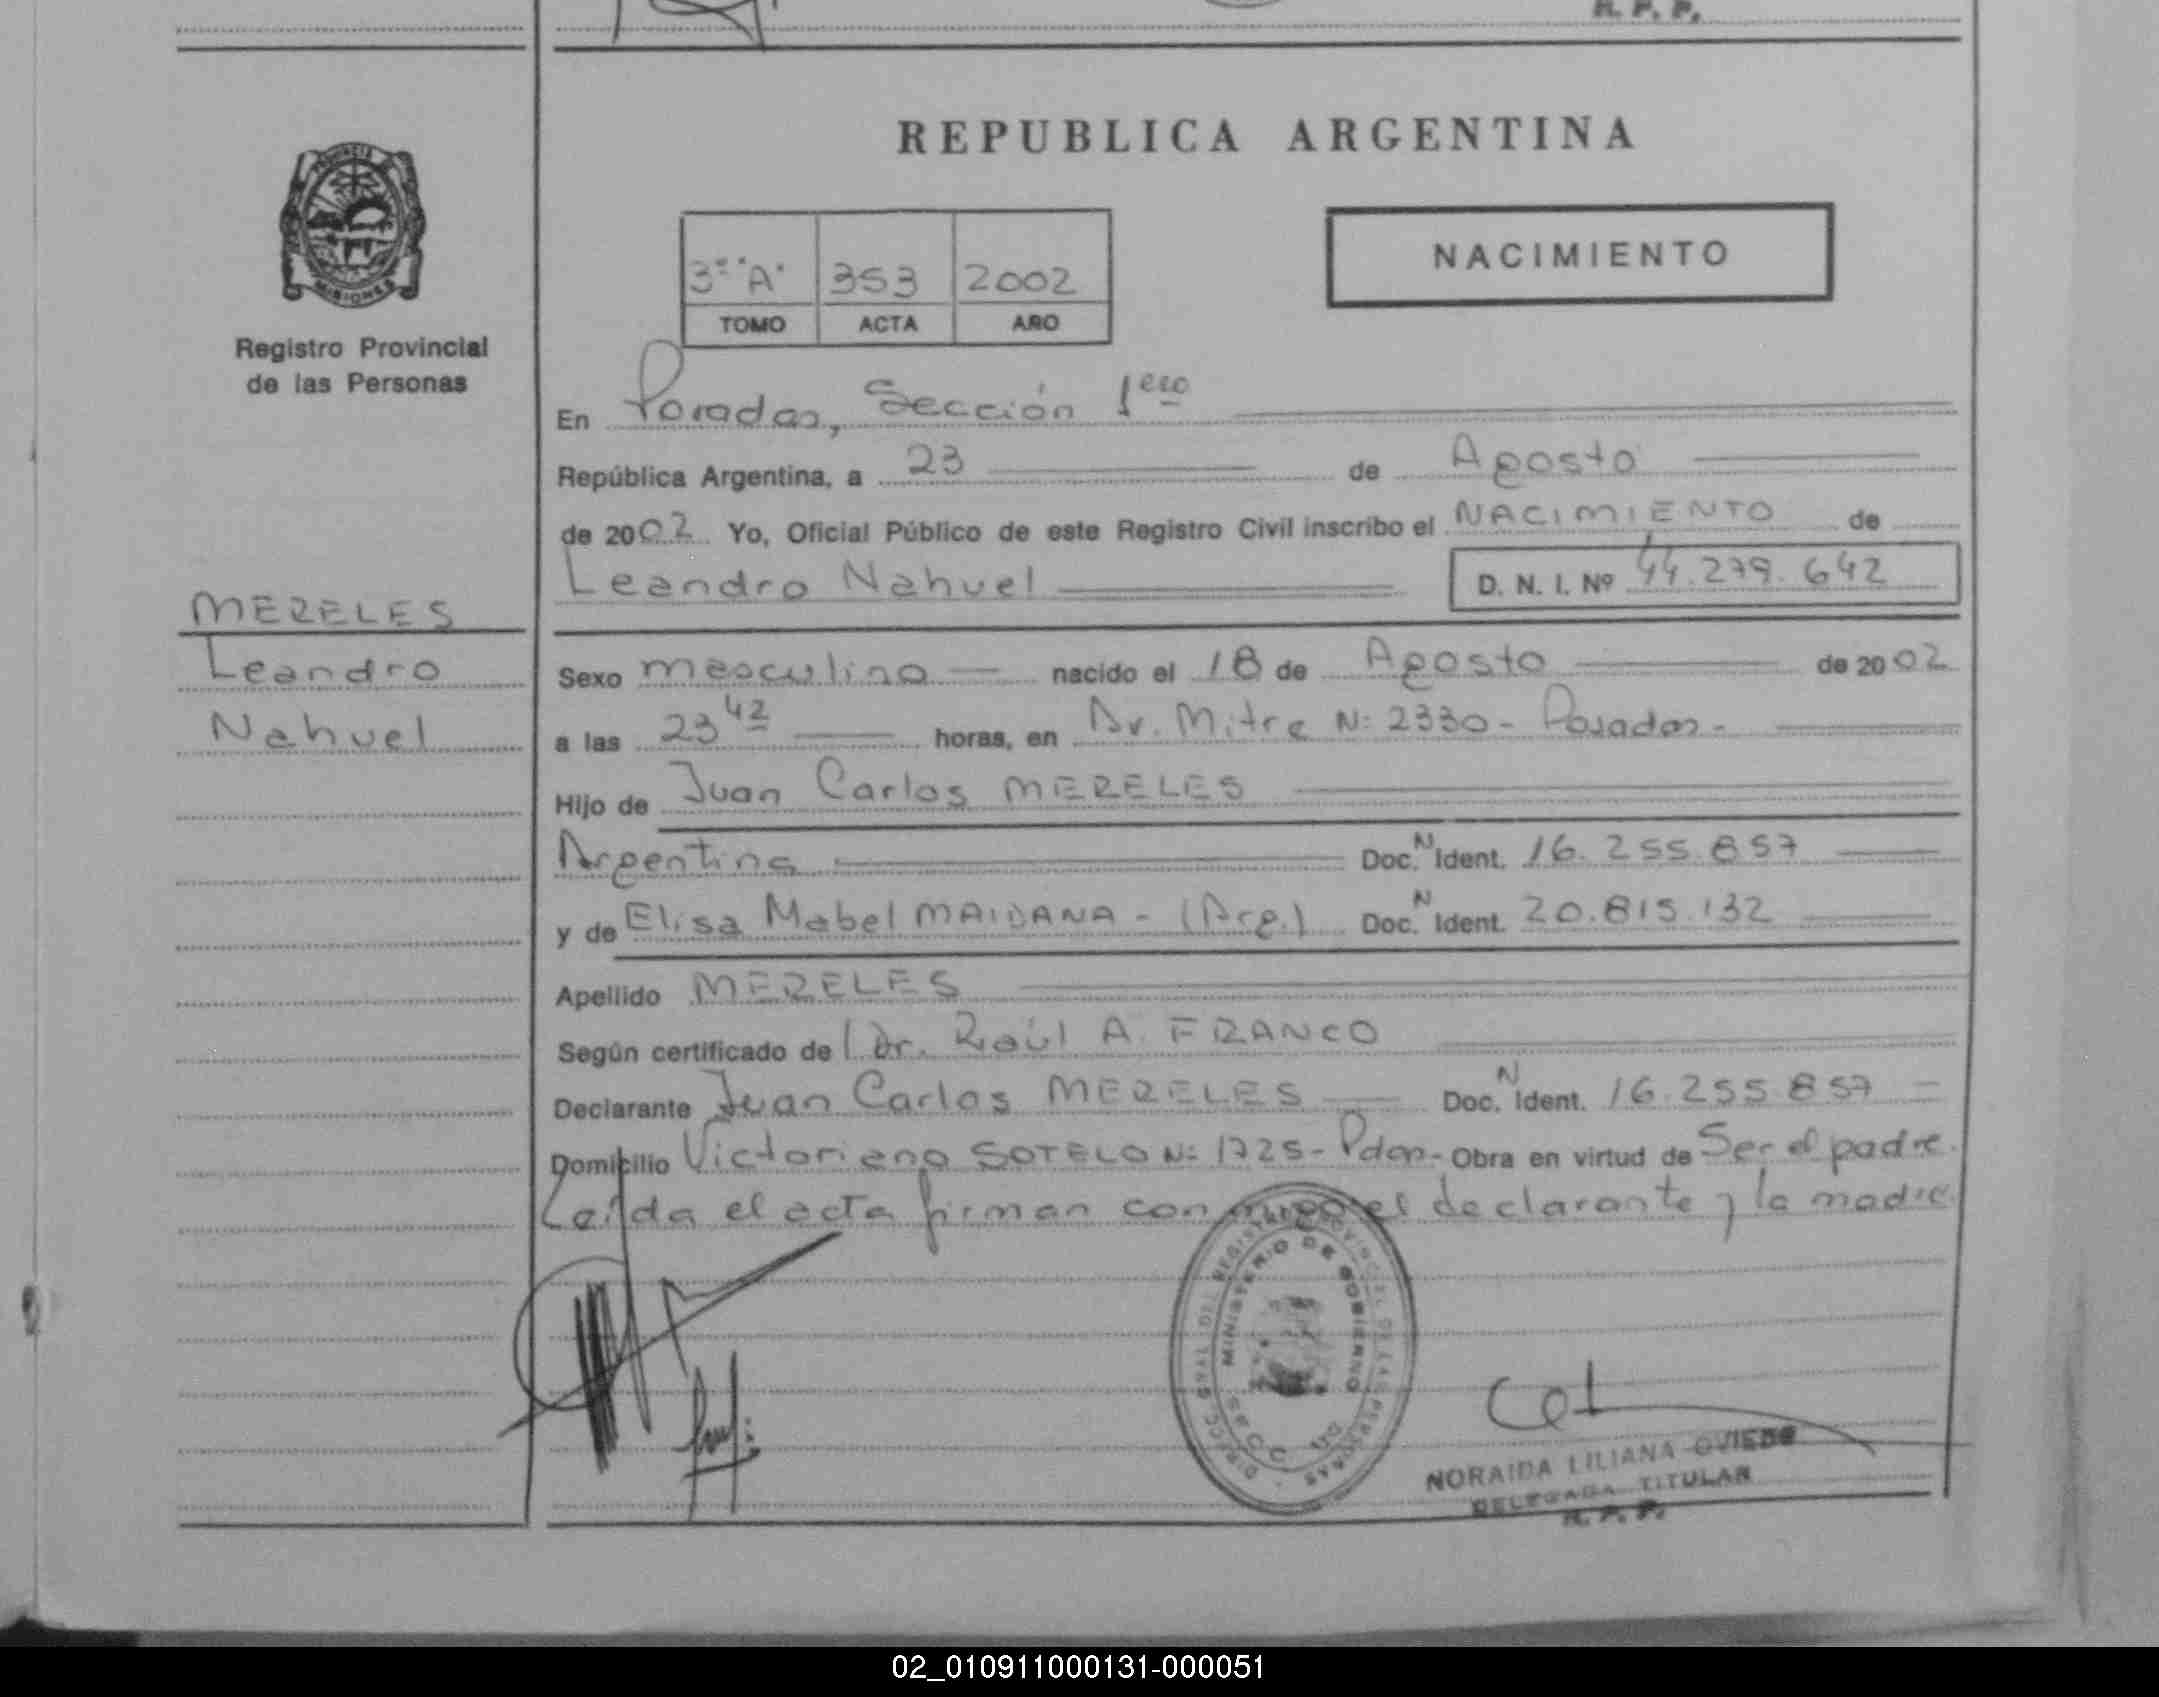 R. P. P.
PROVINCIA
MISIONES
Registro Provincial
de las Personas
REPUBLICA ARGENTINA
NACIMIENTO
3º "A" 353 2002
TOMO ACTA AÑO
En Posadas, Sección 1era
República Argentina, a 23 de Agosto
de 2002 Yo, Oficial Público de este Registro Civil inscribo el NACIMIENTO de
Leandro Nahuel D. N. I. Nº 44.279.642
MERELES
Leandro
Nahuel
Sexo masculino nacido el 18 de Agosto de 2002
a las 23 42 horas, en Av. Mitre Nº 2330 - Posadas -
Hijo de Juan Carlos MERELES
Argentina Doc. N Ident. 16.255.857
y de Elisa Mabel MAIDANA - (Arg.) Doc. N Ident. 20.815.132
Apellido MERELES
Según certificado de Dr. Raúl A. FRANCO
Declarante Juan Carlos MERELES Doc. N Ident. 16.255.857
Domicilio Victoriano SOTELO Nº 1725 - Pdas - Obra en virtud de Ser el padre.
Leída el acta firman conmigo el declarante y la madre.
MINISTERIO DE GOBIERNO
NORAIDA LILIANA OVIEDO
DELEGADA TITULAR
R. P. P.
02_010911000131-000051